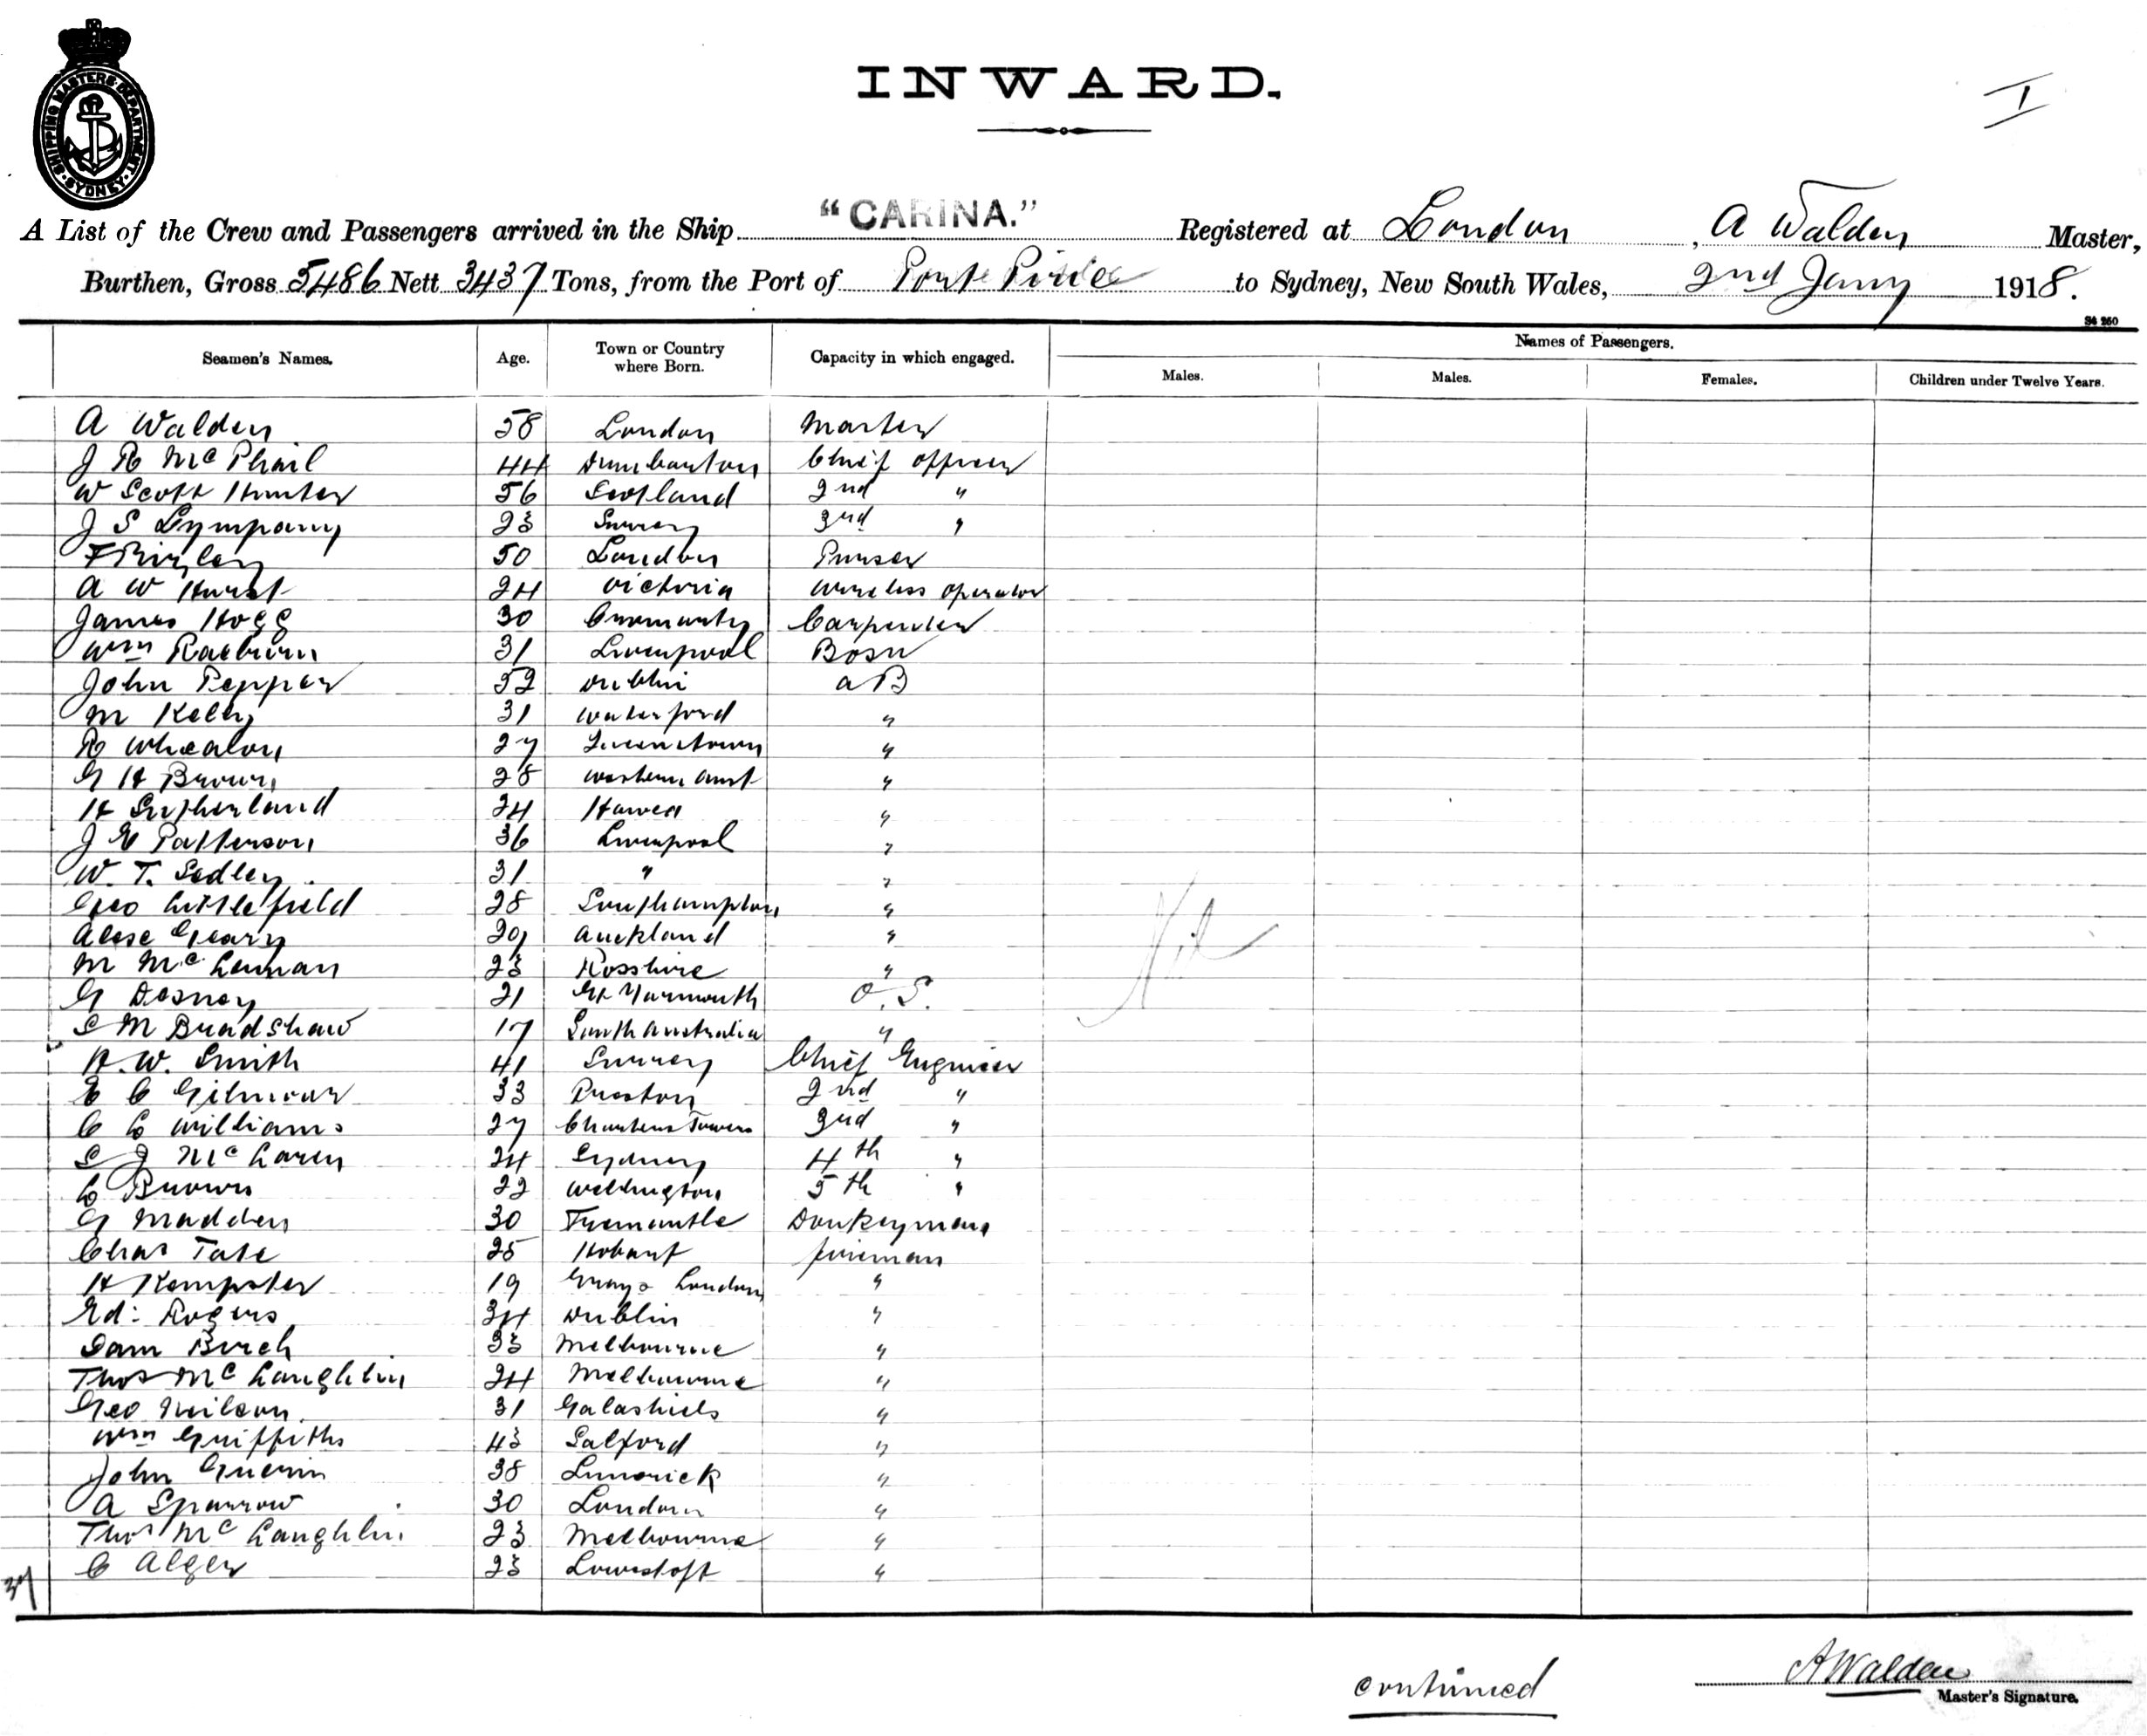 SHIPPING MASTERS DEPARTMENT
SYDNEY
INWARD.
I
A List of the Crew and Passengers arrived in the Ship "CARINA." Registered at London, A Walden Master,
Burthen, Gross 5486 Nett 3437 Tons, from the Port of Port Pirie to Sydney, New South Wales, 2nd Jany 1918.
S4 250
Seamen's Names. Age. Town or Country where Born. Capacity in which engaged. Names of Passengers.
Males. Males. Females. Children under Twelve Years.
A Walden 58 London Master
J R McPhail 44 Dumbarton Chief Officer
W Scott Hunter 56 Scotland 2nd "
J S Lympany 23 Surrey 3rd "
50 London Purser
A W Hurst 24 Victoria Wireless Operator
James Hogg 30 Cromarty Carpenter
Wm Raeburn 31 Liverpool Bosn
John Pepper 52 Dublin AB
M Kelly 31 Waterford "
R Whealon 27 Queenstown "
G H Brown 28 Western Aust "
H Sutherland 24 Hawea "
J E Patterson 36 Liverpool "
W. T. Sedley 31 " "
Geo Littlefield 28 Southampton "
Geary Auckland "
M McLennan 23 Rosshire "
G Desney 21 Gt Yarmouth O.S.
S M Bradshaw 17 South Australia "
H. W. Smith 41 Surrey Chief Engineer
E C Gilmour 33 Preston 2nd "
C C Williams 27 Charters Towers 3rd "
S J McLaren 24 Sydney 4th "
C Brown 22 Wellington 5th "
G Madden 30 Fremantle Donkeyman
Chas Tate 25 Hobart fireman
H Kempster 19 Grays London "
Ed: Rogers 34 Dublin "
Sam Birch 33 Melbourne "
Thos McLaughlin 24 Melbourne "
Geo Neilson 31 Galashiels "
Wm Griffiths 43 Salford "
John Guerin 38 Limerick "
A Sparrow 30 London "
Thos McLaughlin 23 Melbourne "
C Alger 23 Lowestoft "
Nil
37
continued
A Walden
Master's Signature.